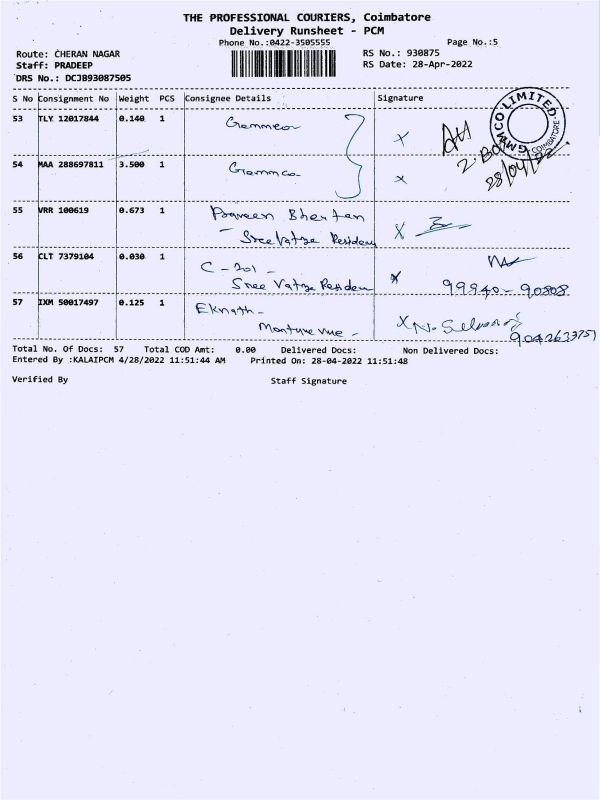 THE PROFESSIONAL COURIERS, Coimbatore
Delivery Runsheet - PCM
Phone No.:0422-3505555 Page No.:5
Route: CHERAN NAGAR RS No.: 930875
Staff: PRADEEP RS Date: 28-Apr-2022
DRS No.: DCJB93087505
S No Consignment No Weight PCS Consignee Details Signature
GMMCO LIMITED COIMBATORE
53 TLY 12017844 0.140 1 X
28/04/22
54 MAA 288697811 3.500 1 X
55 VRR 100619 0.673 1 Praveen X
Sree Vatsa Residen
56 CLT 7379104 0.030 1 C - 201 - X
Sree Vatsa Residen 99940-90808
57 IXM 50017497 0.125 1 Eknath - X N.
904263375
Total No. Of Docs: 57 Total COD Amt: 0.00 Delivered Docs: Non Delivered Docs:
Entered By :KALAIPCM 4/28/2022 11:51:44 AM Printed On: 28-04-2022 11:51:48
Verified By Staff Signature